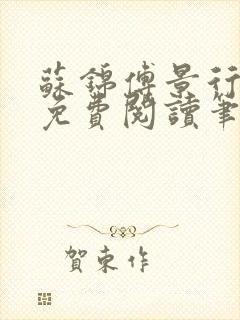 蘇錦傅景行
免費閱讀筆
賀東作